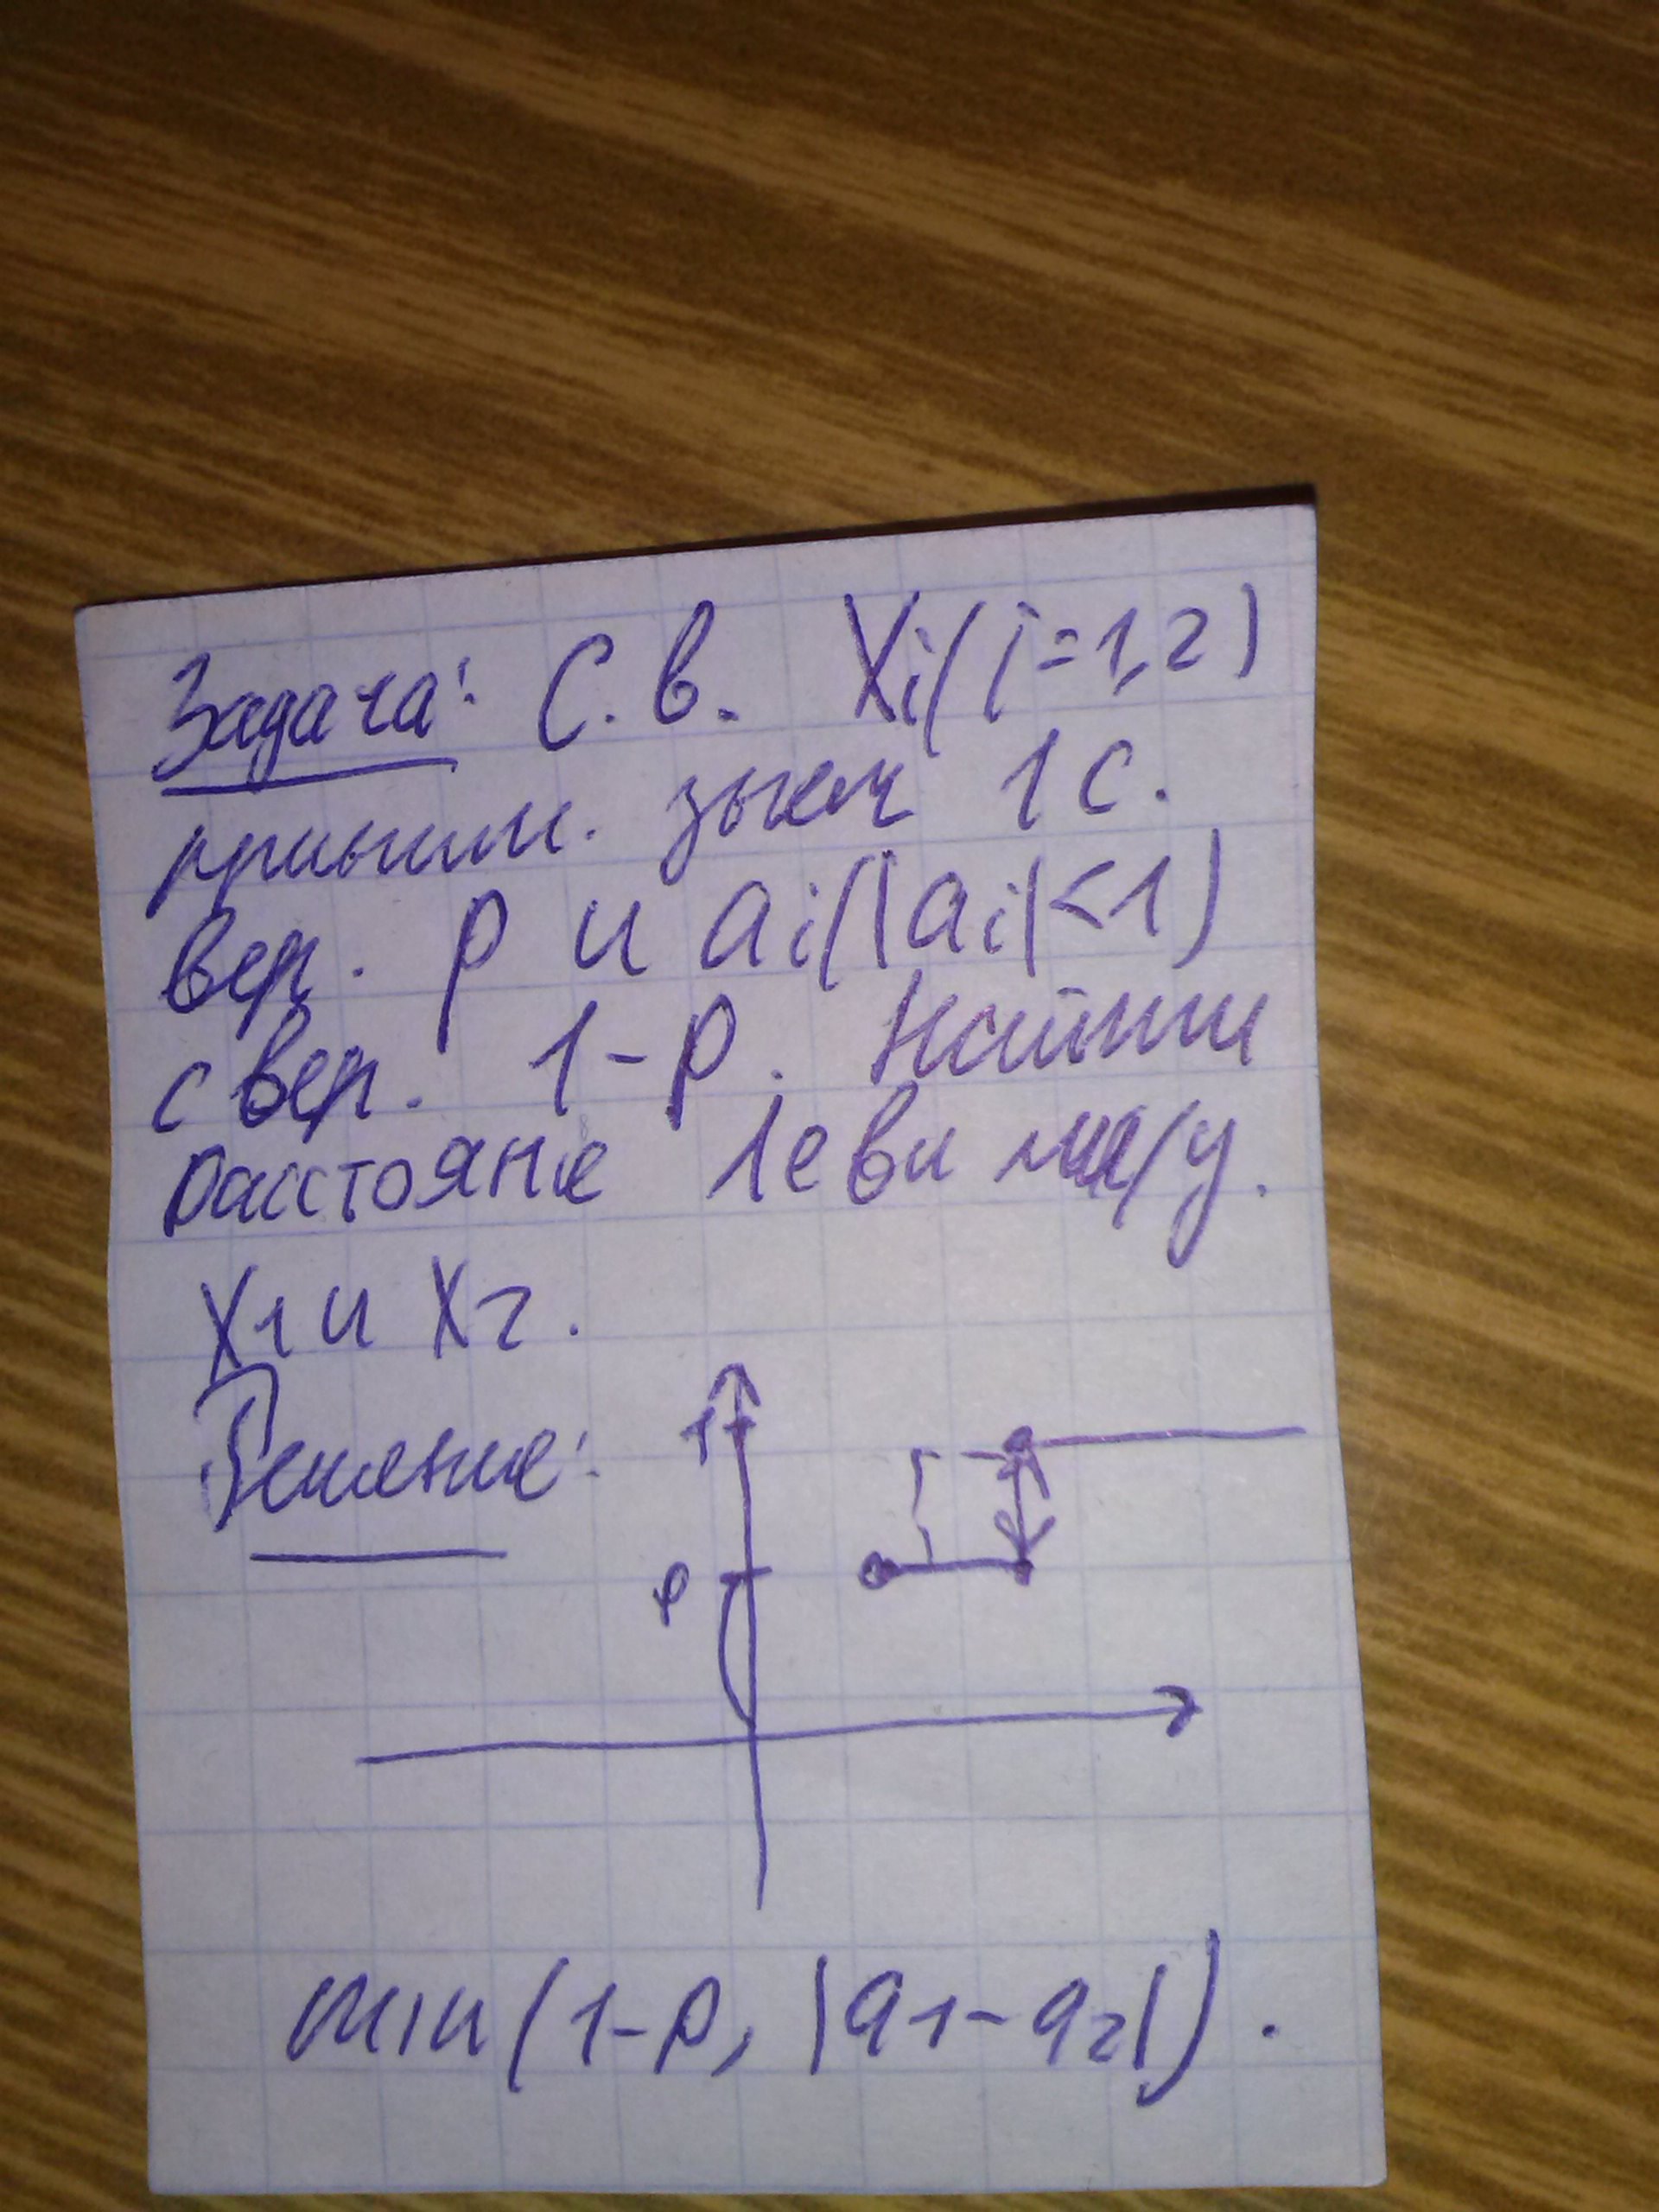 Задача: С.в. Xi(i=1,2)
приним. знач 1 с.
вер. p и ai(|ai|<1)
с вер. 1-p. Найти
расстояние Леви между.
X1 и X2.
Решение:
1
p
min(1-p, |a1-a2|).